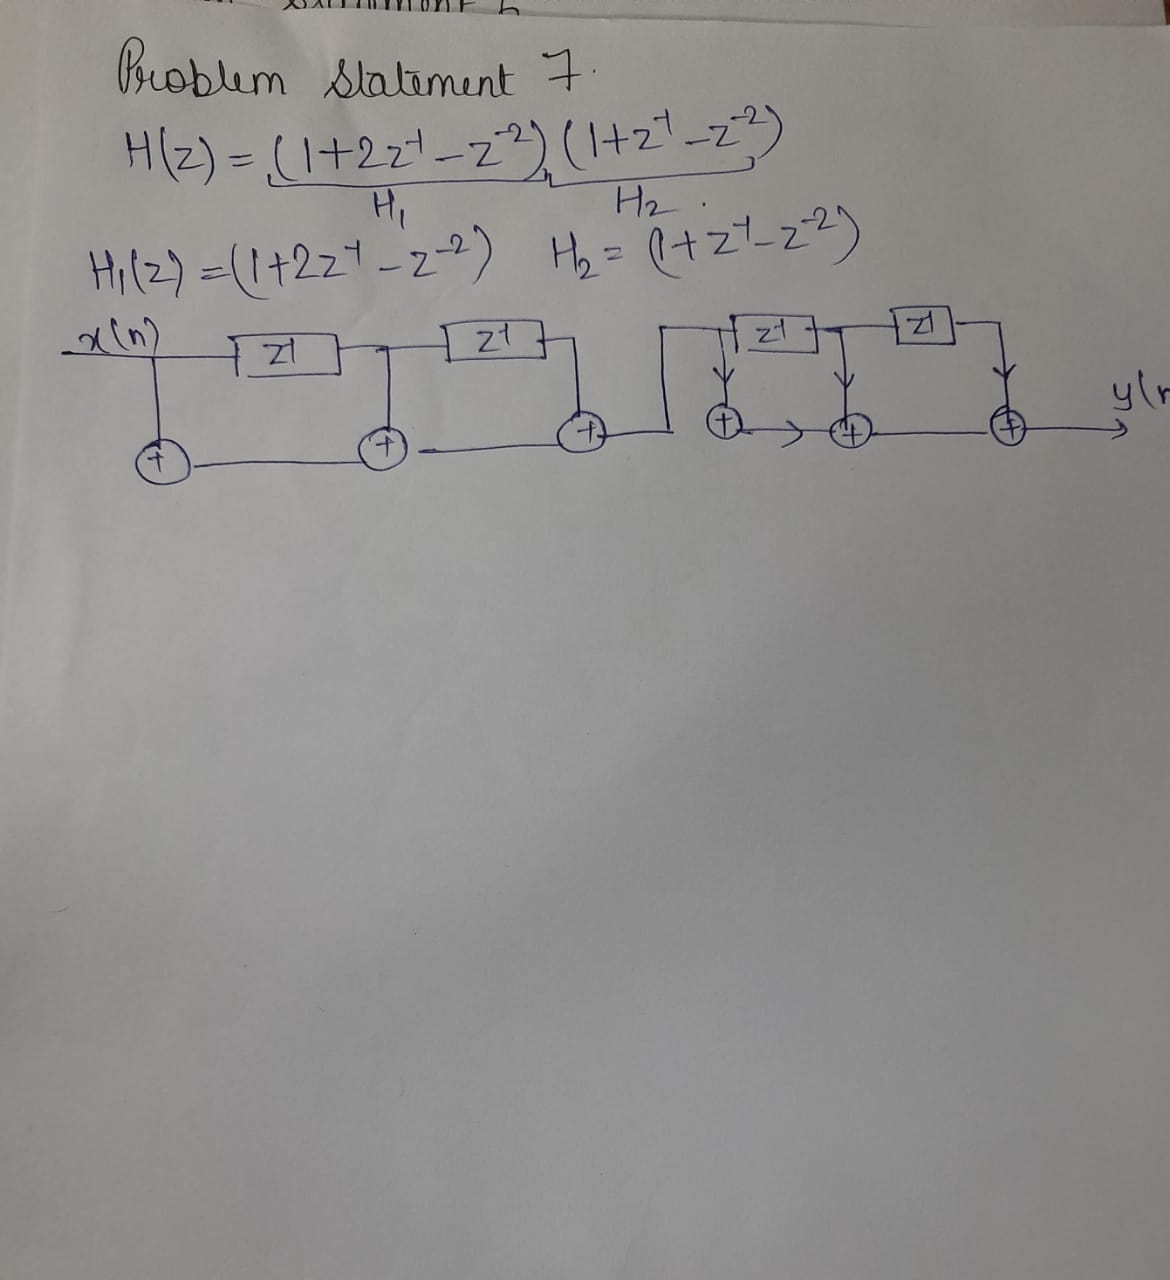 Problem Statement 7.
H(z) = (1+2z⁻¹-z⁻²)(1+z⁻¹-z⁻²)
H₁ H₂.
H₁(z) = (1+2z⁻¹-z⁻²) H₂ = (1+z⁻¹-z⁻²)
x(n) z⁻¹ z⁻¹ z⁻¹ z⁻¹
+ + + + + + y(n